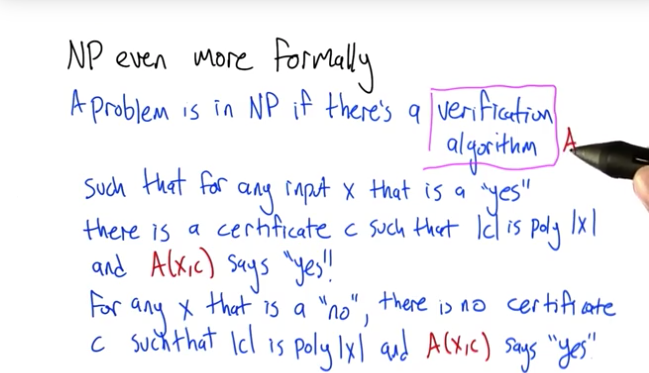 NP even more formally
A problem is in NP if there's a verification
algorithm A
such that for any input x that is a "yes"
there is a certificate c such that |c| is poly |x|
and A(x,c) says "yes"!
For any x that is a "no", there is no certificate
c such that |c| is poly |x| and A(x,c) says "yes"